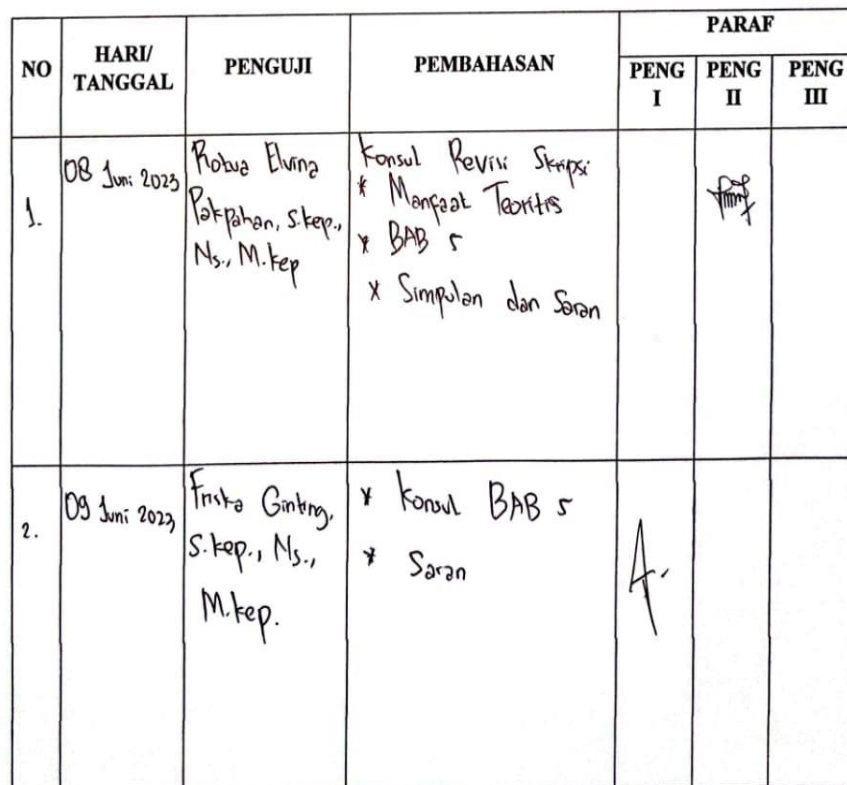 NO
HARI/
TANGGAL
PENGUJI
PEMBAHASAN
PARAF
PENG
I
PENG
II
PENG
III
1.
08 Juni 2023
Rotua Elvina
Pakpahan, S.kep.,
Ns., M.kep
Konsul Revisi Skripsi
* Manfaat Teoritis
* BAB 5
* Simpulan dan Saran
2.
09 Juni 2023
Friska Ginting,
S.kep., Ns.,
M.kep.
* Konsul BAB 5
* Saran